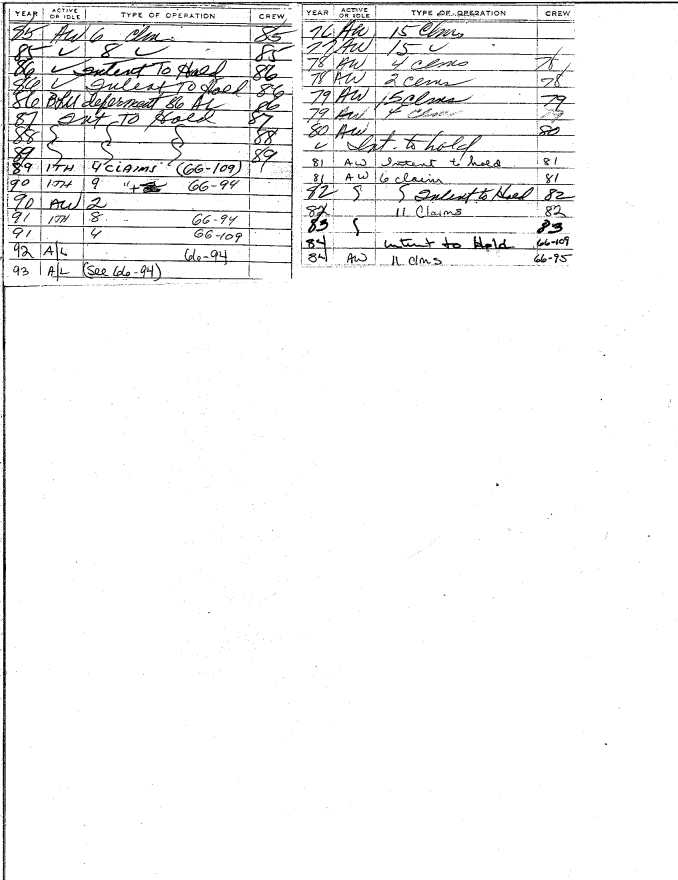 YEAR ACTIVE OR IDLE TYPE OF OPERATION CREW
85 AW 6 clm. 85
85 ✓ 8 ✓ 85
86 ✓ Intent To Hold 86
86 ✓ Intent To Hold 86
86 deferment 86 AL 86
87 Int To Hold 87
88 88
89 89
89 ITH 4 CLAIMS (66-109)
90 ITH 9 66-94
90 AW 2
91 ITH 8 66-94
91 4 66-109
92 A/L 66-94
93 A/L (See 66-94)
YEAR ACTIVE OR IDLE TYPE OF OPERATION CREW
76 AW 15 Clms
77 AW 15 ✓
78 AW 4 clms 78
78 AW 2 clms 78
79 AW 15 clms 79
79 AW 4 clms 79
80 AW 80
✓ Int. to hold
81 AW Intent to hold 81
81 AW 6 claim 81
82 Intent to Hold 82
82 11 Claims 82
83 83
84 intent to Hold 66-109
84 AW 11 clms 66-95